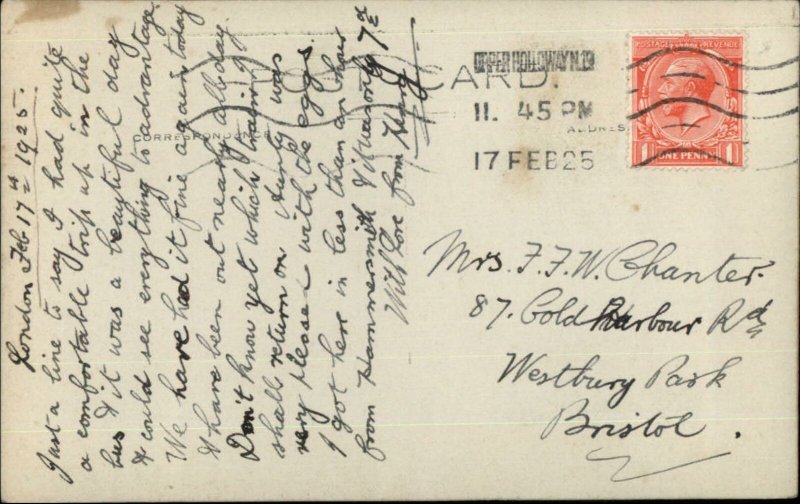 London Feb 17th 1925.
Just a line to say I had quite
a comfortable trip up in the
bus & it was a beautiful day
& could see everything to advantage
We have had it fine again today
& have been out nearly all day.
Don't know yet which train I
shall return on Aunty was
very pleased with the eggs.
I got here in less than an hour
from Hammersmith & it was only 7d
With love from Harry
CARD.
CORRESPONDENCE
ADDRESS
UPPER HOLLOWAY N.19
11. 45 PM
17 FEB 25
POSTAGE REVENUE
1 ONE PENNY 1
Mrs. F. F. W. Chanter.
87. Cold Harbour Rd
Westbury Park
Bristol.